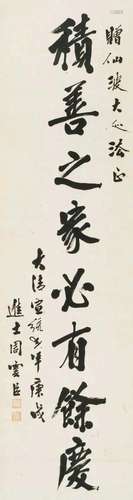 贈仙波大法正
積善之家必有餘慶
大清宣統年庚戌
進士周雲